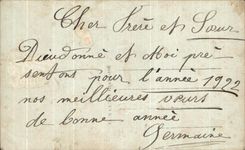 Cher Frère et Sœur
Dieudonné et Moi pré
sentons pour l'année 1922
nos meilleures vœux
de bonne année
Germaine